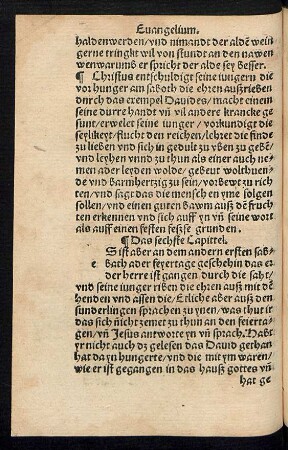 Euangelium.
haldenwerden/vnd nimandt der aldē wein
gerne tringkt wil von stundt an den nawen
wenwarumb er spricht der alde sey besser.
¶ Christus entschuldigt seine iungern die
vor hunger am saboth die ehren außrieben
durch das exempel Dauides/ macht einem
seine durre handt vñ vil andere krancke ge
sunt/erwelet seine iunger/ vorkundigt die
seylikeyt/flucht den reichen/lehret die finde
zu lieben vnd sich in gedult zu vben zu gebē/
vnd leyhen vnnd zu thun als einer auch ne-
men ader leyden wolde/gebeut wolthuen-
de vnd barmhertzig zu sein/vorbewt zu rich
ten/vnd sagt das die menschen im yne solgen
sollen/vnd einen guten bawm auß dē frucht
ten erkennen vnd sich auff yn vñ seine wort
als auff einen festen felsze grunden.
¶ Das sechste Capittel.
e
S ist aber an dem andern ersten sab-
bach ader feyertage geschehin das er
der herre ist gangen durch die saht/
vnd seine iunger riben die ehren auß mit dē
henden vnd assen die/Etliche aber auß den
sunderlingen sprachen zu ynen/was thut ir
das sich nicht zemet zu thun an den feierta-
gen/vñ Jesus antworte yn vñ sprach. Habt
yr nicht auch dz gelesen das Dauid gethan
hat da yn hungerte/vnd die mit ym waren/
wie er ist gegangen in das hauß gottes vñ
hat ge